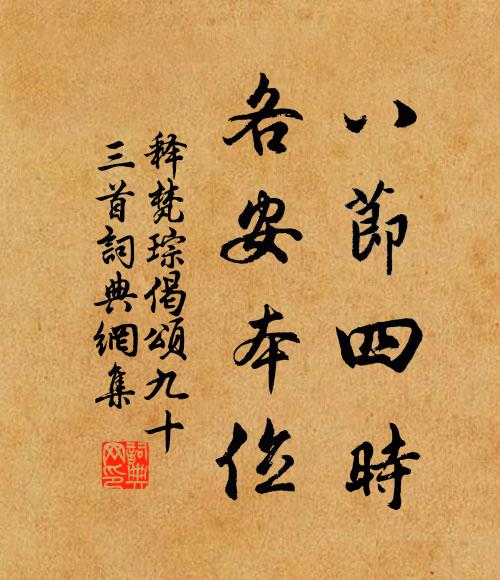 八節四時
各安本位
释梵琮偈頌九十
三首詞典網集
詞典网印